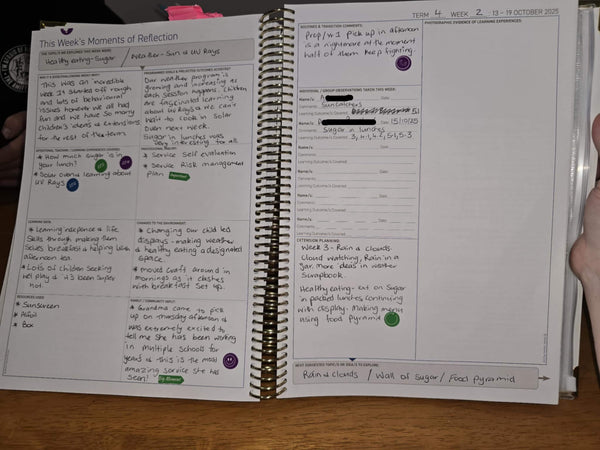 This Week's Moments of Reflection
THE TOPIC/S WE EXPLORED THIS WEEK WERE:
Healthy eating-Sugar / Weather - Sun & UV Rays
This was an incredible
week it started off rough
and lots of behavioural
issues however we all had
fun and we have so many
children's ideas & extensions
for the rest of the term.
Our weather program is
growing and increasing as
each session happens. Children
are fascinated learning
about UV Rays & we can't
wait to cook in solar
oven next week.
Sugar in lunches was
very interesting for all
* How much sugar is in
your lunch?
* Solar ovens learning about
UV Rays
* Service self evaluation
* Service Risk management
plan
LEARNING DATA:
* Learning inpence & life
Skills through making them
selves breakfast & helping with
afternoon tea.
* Lots of children seeking
hel play & it's been super
hot
CHANGES TO THE ENVIRONMENT:
* Changing our child led
displays - making weather
& healthy eating a designated
space.
* moved crafts around in
mornings as it clashes
with breakfast set up.
RESOURCES USED:
* Sunscreen
* Alfoil
* Box
FAMILY / COMMUNITY INPUT:
* Grandma came to pick
up on Thursday afternoon &
was extremely excited to
tell me she has been working
in multiple schools for
years & this is the most
amazing service she has
seen!
TERM 4 WEEK 2 13 - 19 OCTOBER 2025
ROUTINES & TRANSITION COMMENTS:
Prep/1's pick up in afternoon
is a nightmare at the moment
half of them keep fighting.
PHOTOGRAPHIC EVIDENCE OF LEARNING EXPERIENCES:
INDIVIDUAL / GROUP OBSERVATIONS TAKEN THIS WEEK:
Name/s: Date:
Comments: Suncatchers
Learning Outcome/s Covered: 5.1
Name/s: Date: 15/10/25
Comments: Sugar in lunches
Learning Outcome/s Covered: 3, 4.1, 4.2, 5.1, 5.3
Name/s: Date:
Comments:
Learning Outcome/s Covered:
Name/s: Date:
Comments:
Learning Outcome/s Covered:
Name/s: Date:
Comments:
Learning Outcome/s Covered:
Name/s: Date:
Comments:
Learning Outcome/s Covered:
EXTENSION PLANNING:
Week 3 - Rain & clouds.
Cloud watching, Rain in a
Jar, more ideas in weather
Scrapbook.
Healthy eating - ext on Sugar
in packed lunches continuing
with display - Making menu
using food pyramid
NEXT SUGGESTED TOPIC/S OR IDEA/S TO EXPLORE:
Rain & clouds / Wall of sugar / Food pyramid